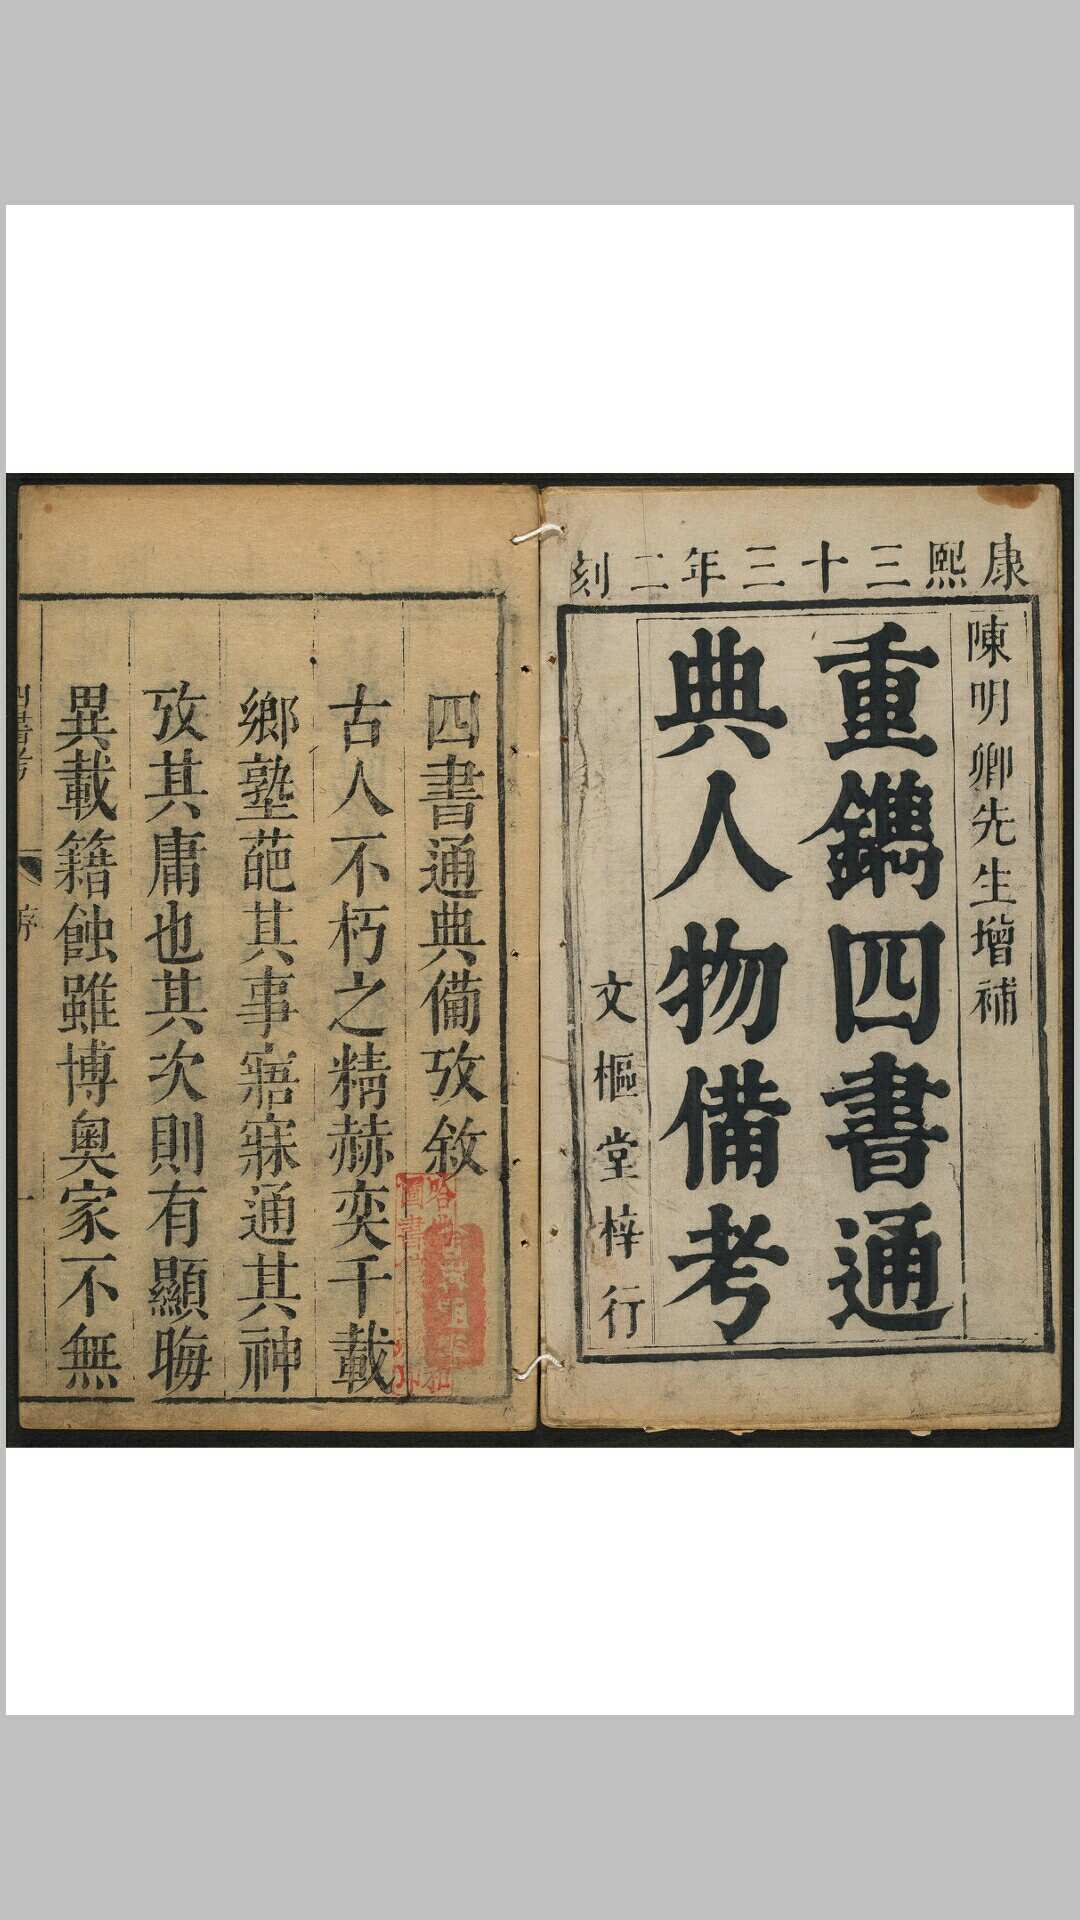 康熙三十三年二刻
陳明卿先生增補
重鐫四書通
典人物備考
文樞堂梓行
四書通典備攷敘
古人不朽之精赫奕千載
鄉塾葩其事寤寐通其神
攷其庸也其次則有顯晦
異載籍蝕雖博奥家不無
四書考
序
一